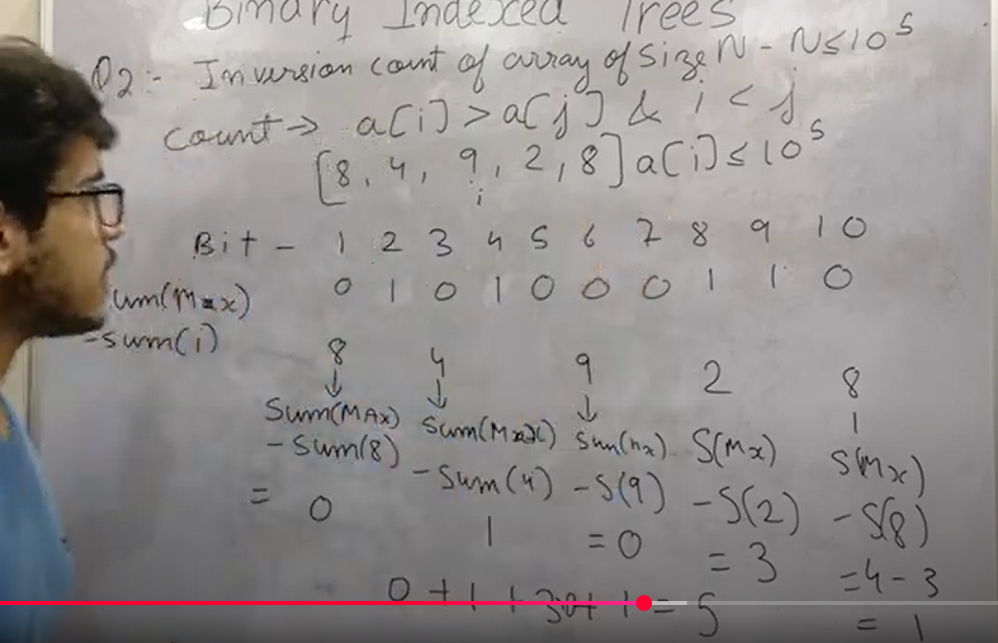 Binary Indexed Trees
Q2:- Inversion count of array of size N - N≤10^5
count → a[i] > a[j] & i < j
[8, 4, 9, 2, 8] a[i] ≤ 10^5
i
Bit - 1 2 3 4 5 6 7 8 9 10
0 1 0 1 0 0 0 1 1 0
sum(Max)
-sum(i)
8 4 9 2 8
Sum(MAx) Sum(Max) Sum(nx) S(Mx) S(Mx)
-Sum(8) -Sum(4) -S(9) -S(2) -S(8)
= 0 1 =0 = 3 =4-3
= 1
0 + 1 + 1 = 5